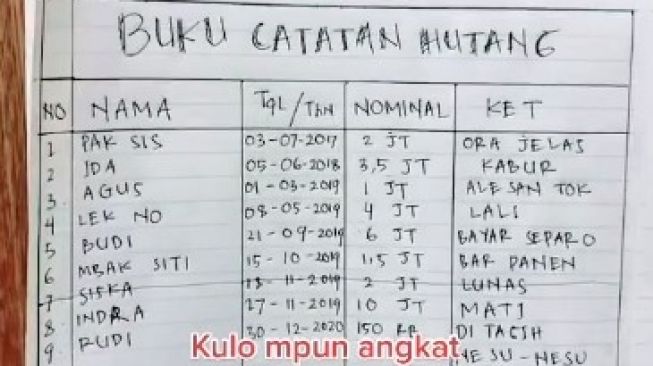 BUKU CATATAN HUTANG
NO NAMA TGL/THN NOMINAL KET
1 PAK SIS 03-07-2017 2 JT ORA JELAS
2 IDA 05-06-2018 3,5 JT KABUR
3. AGUS 01-03-2019 1 JT ALESAN TOK
4 LEK NO 08-05-2019 4 JT LALI
5 BUDI 21-09-2019 6 JT BAYAR SEPARO
6 MBAK SITI 15-10-2019 1,5 JT BAR PANEN
7 SISKA 2 JT LUNAS
8. INDRA 27-11-2019 10 JT MATI
9. RUDI 30-12-2020 150 DI TAGIH
NESU-NESU
Kulo mpun angkat